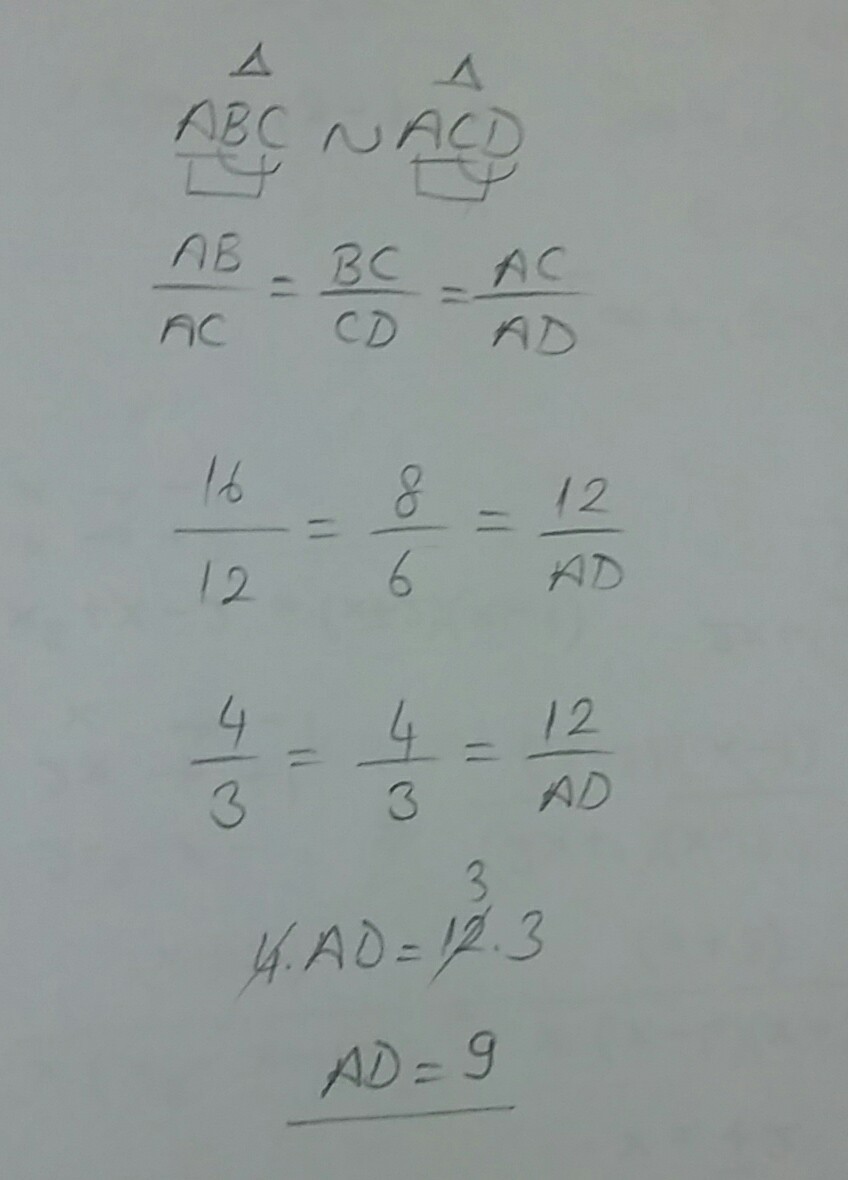 Δ Δ
ABC ~ ACD
AB/AC = BC/CD = AC/AD
16/12 = 8/6 = 12/AD
4/3 = 4/3 = 12/AD
3
4.AD = 12.3
AD = 9